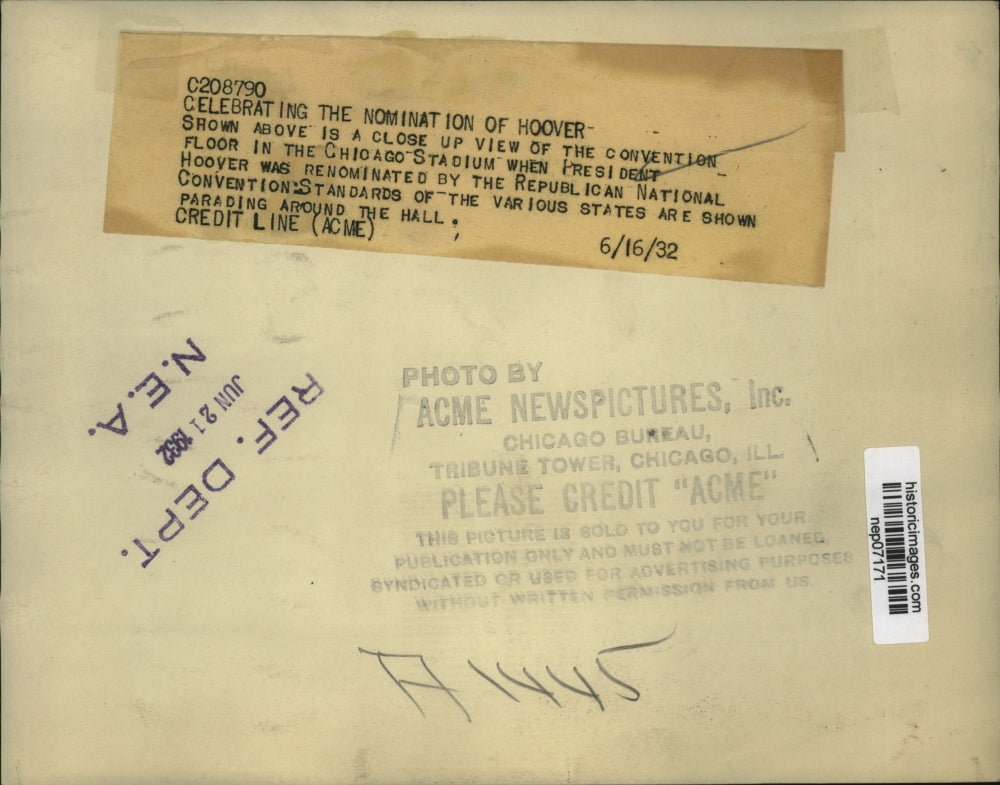 C208790
CELEBRATING THE NOMINATION OF HOOVER-
SHOWN ABOVE IS A CLOSE UP VIEW OF THE CONVENTION
FLOOR IN THE CHICAGO STADIUM WHEN PRESIDENT
HOOVER WAS RENOMINATED BY THE REPUBLICAN NATIONAL
CONVENTION:STANDARDS OF THE VARIOUS STATES ARE SHOWN
PARADING AROUND THE HALL.
CREDIT LINE (ACME)
6/16/32
REF. DEPT.
JUN 21 1932
N.E.A.
PHOTO BY
ACME NEWSPICTURES, Inc.
CHICAGO BUREAU,
TRIBUNE TOWER, CHICAGO, ILL.
PLEASE CREDIT "ACME"
THIS PICTURE IS SOLD TO YOU FOR YOUR
PUBLICATION ONLY AND MUST NOT BE LOANED,
SYNDICATED OR USED FOR ADVERTISING PURPOSES
WITHOUT WRITTEN PERMISSION FROM US.
historicimages.com
nep07171
A 1445